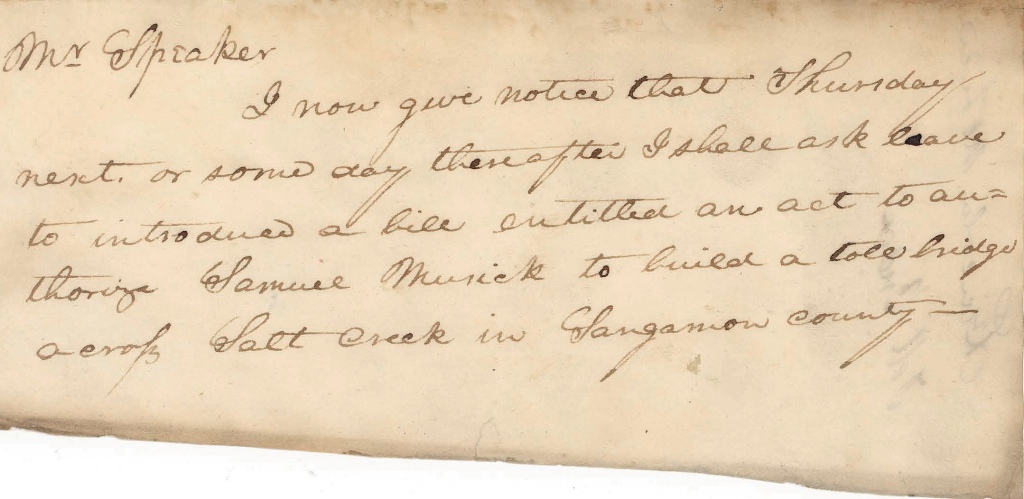 Mr Speaker
I now give notice that Thursday
next. or some day thereafter I shall ask leave
to introduce a bill entitled an act to au=
thorize Samuel Musick to build a toll bridge
across Salt Creek in Sangamon county—